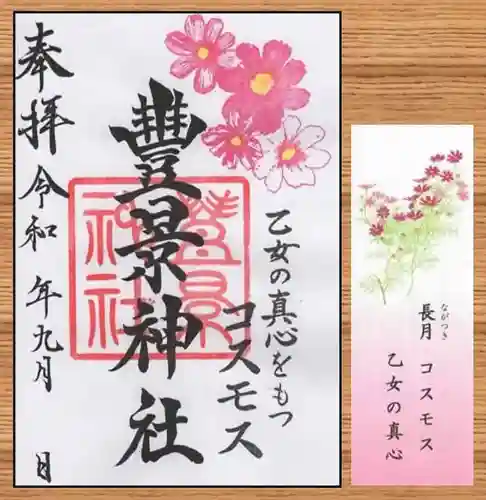 乙女の真心をもつ
コスモス
豐景神社
豊景
神社
奉拝 令和 年九月 日
長月 コスモス
ながつき
乙女の真心